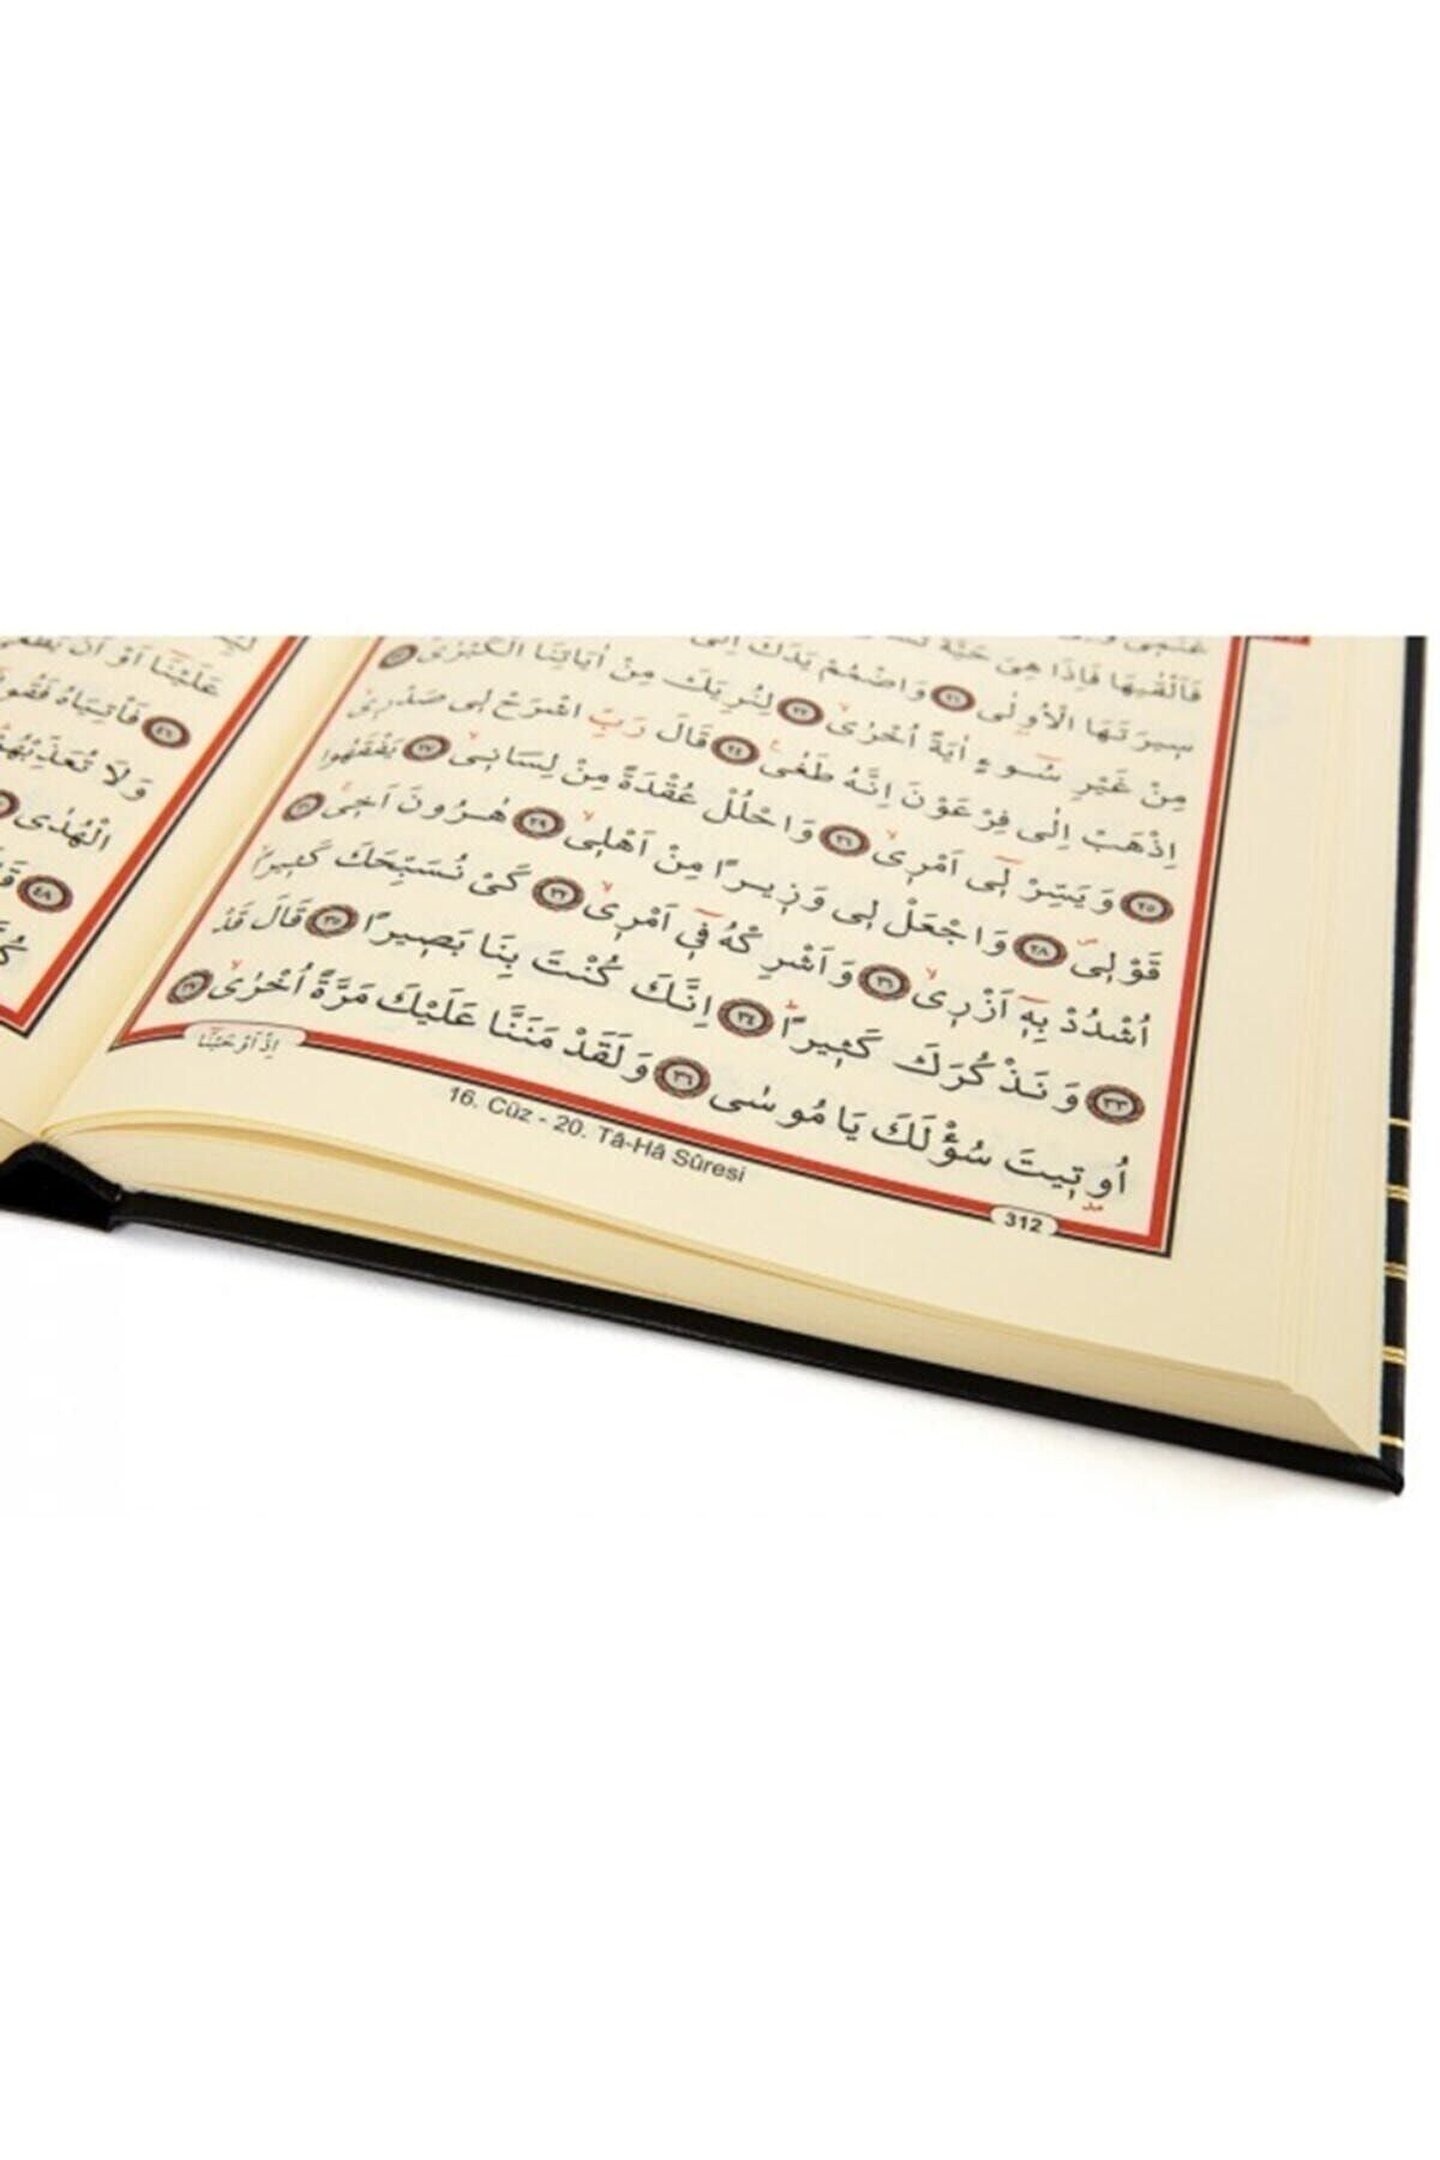 فَاَلْقٰيهَا فَاِذَا هِىَ حَيَّةٌ
سٖيرَتَهَا الْاُولٰى ﴿٢١﴾ وَاضْمُمْ يَدَكَ اِلٰى
مِنْ غَيْرِ سُٓوءٍ اٰيَةً اُخْرٰى ﴿٢٢﴾ لِنُرِيَكَ مِنْ اٰيَاتِنَا الْكُبْرٰى ﴿٢٣﴾
اِذْهَبْ اِلٰى فِرْعَوْنَ اِنَّهُ طَغٰى ﴿٢٤﴾ قَالَ رَبِّ اشْرَحْ لٖى صَدْرٖى
﴿٢٥﴾ وَيَسِّرْ لٖٓى اَمْرٖى ﴿٢٦﴾ وَاحْلُلْ عُقْدَةً مِنْ لِسَانٖى ﴿٢٧﴾ يَفْقَهُوا
قَوْلٖى ﴿٢٨﴾ وَاجْعَلْ لٖى وَزٖيرًا مِنْ اَهْلٖى ﴿٢٩﴾ هٰرُونَ اَخٖى ﴿٣٠﴾
اُشْدُدْ بِهٖٓ اَزْرٖى ﴿٣١﴾ وَاَشْرِكْهُ فٖٓى اَمْرٖى ﴿٣٢﴾ كَىْ نُسَبِّحَكَ كَثٖيرًا
﴿٣٣﴾ وَنَذْكُرَكَ كَثٖيرًا ﴿٣٤﴾ اِنَّكَ كُنْتَ بِنَا بَصٖيرًا ﴿٣٥﴾ قَالَ قَدْ
اُوتٖيتَ سُؤْلَكَ يَا مُوسٰى ﴿٣٦﴾ وَلَقَدْ مَنَنَّا عَلَيْكَ مَرَّةً اُخْرٰى ﴿٣٧﴾
312
اِذْ اَوْحَيْنَٓا
16. Cüz - 20. Tâ-Hâ Sûresi
عَلَيْنَٓا اَوْ اَنْ يَطْغٰى
﴿٤٦﴾ فَأْتِيَاهُ فَقُولَٓا
وَلَا تُعَذِّبْهُمْ
الْهُدٰى
﴿٤٨﴾